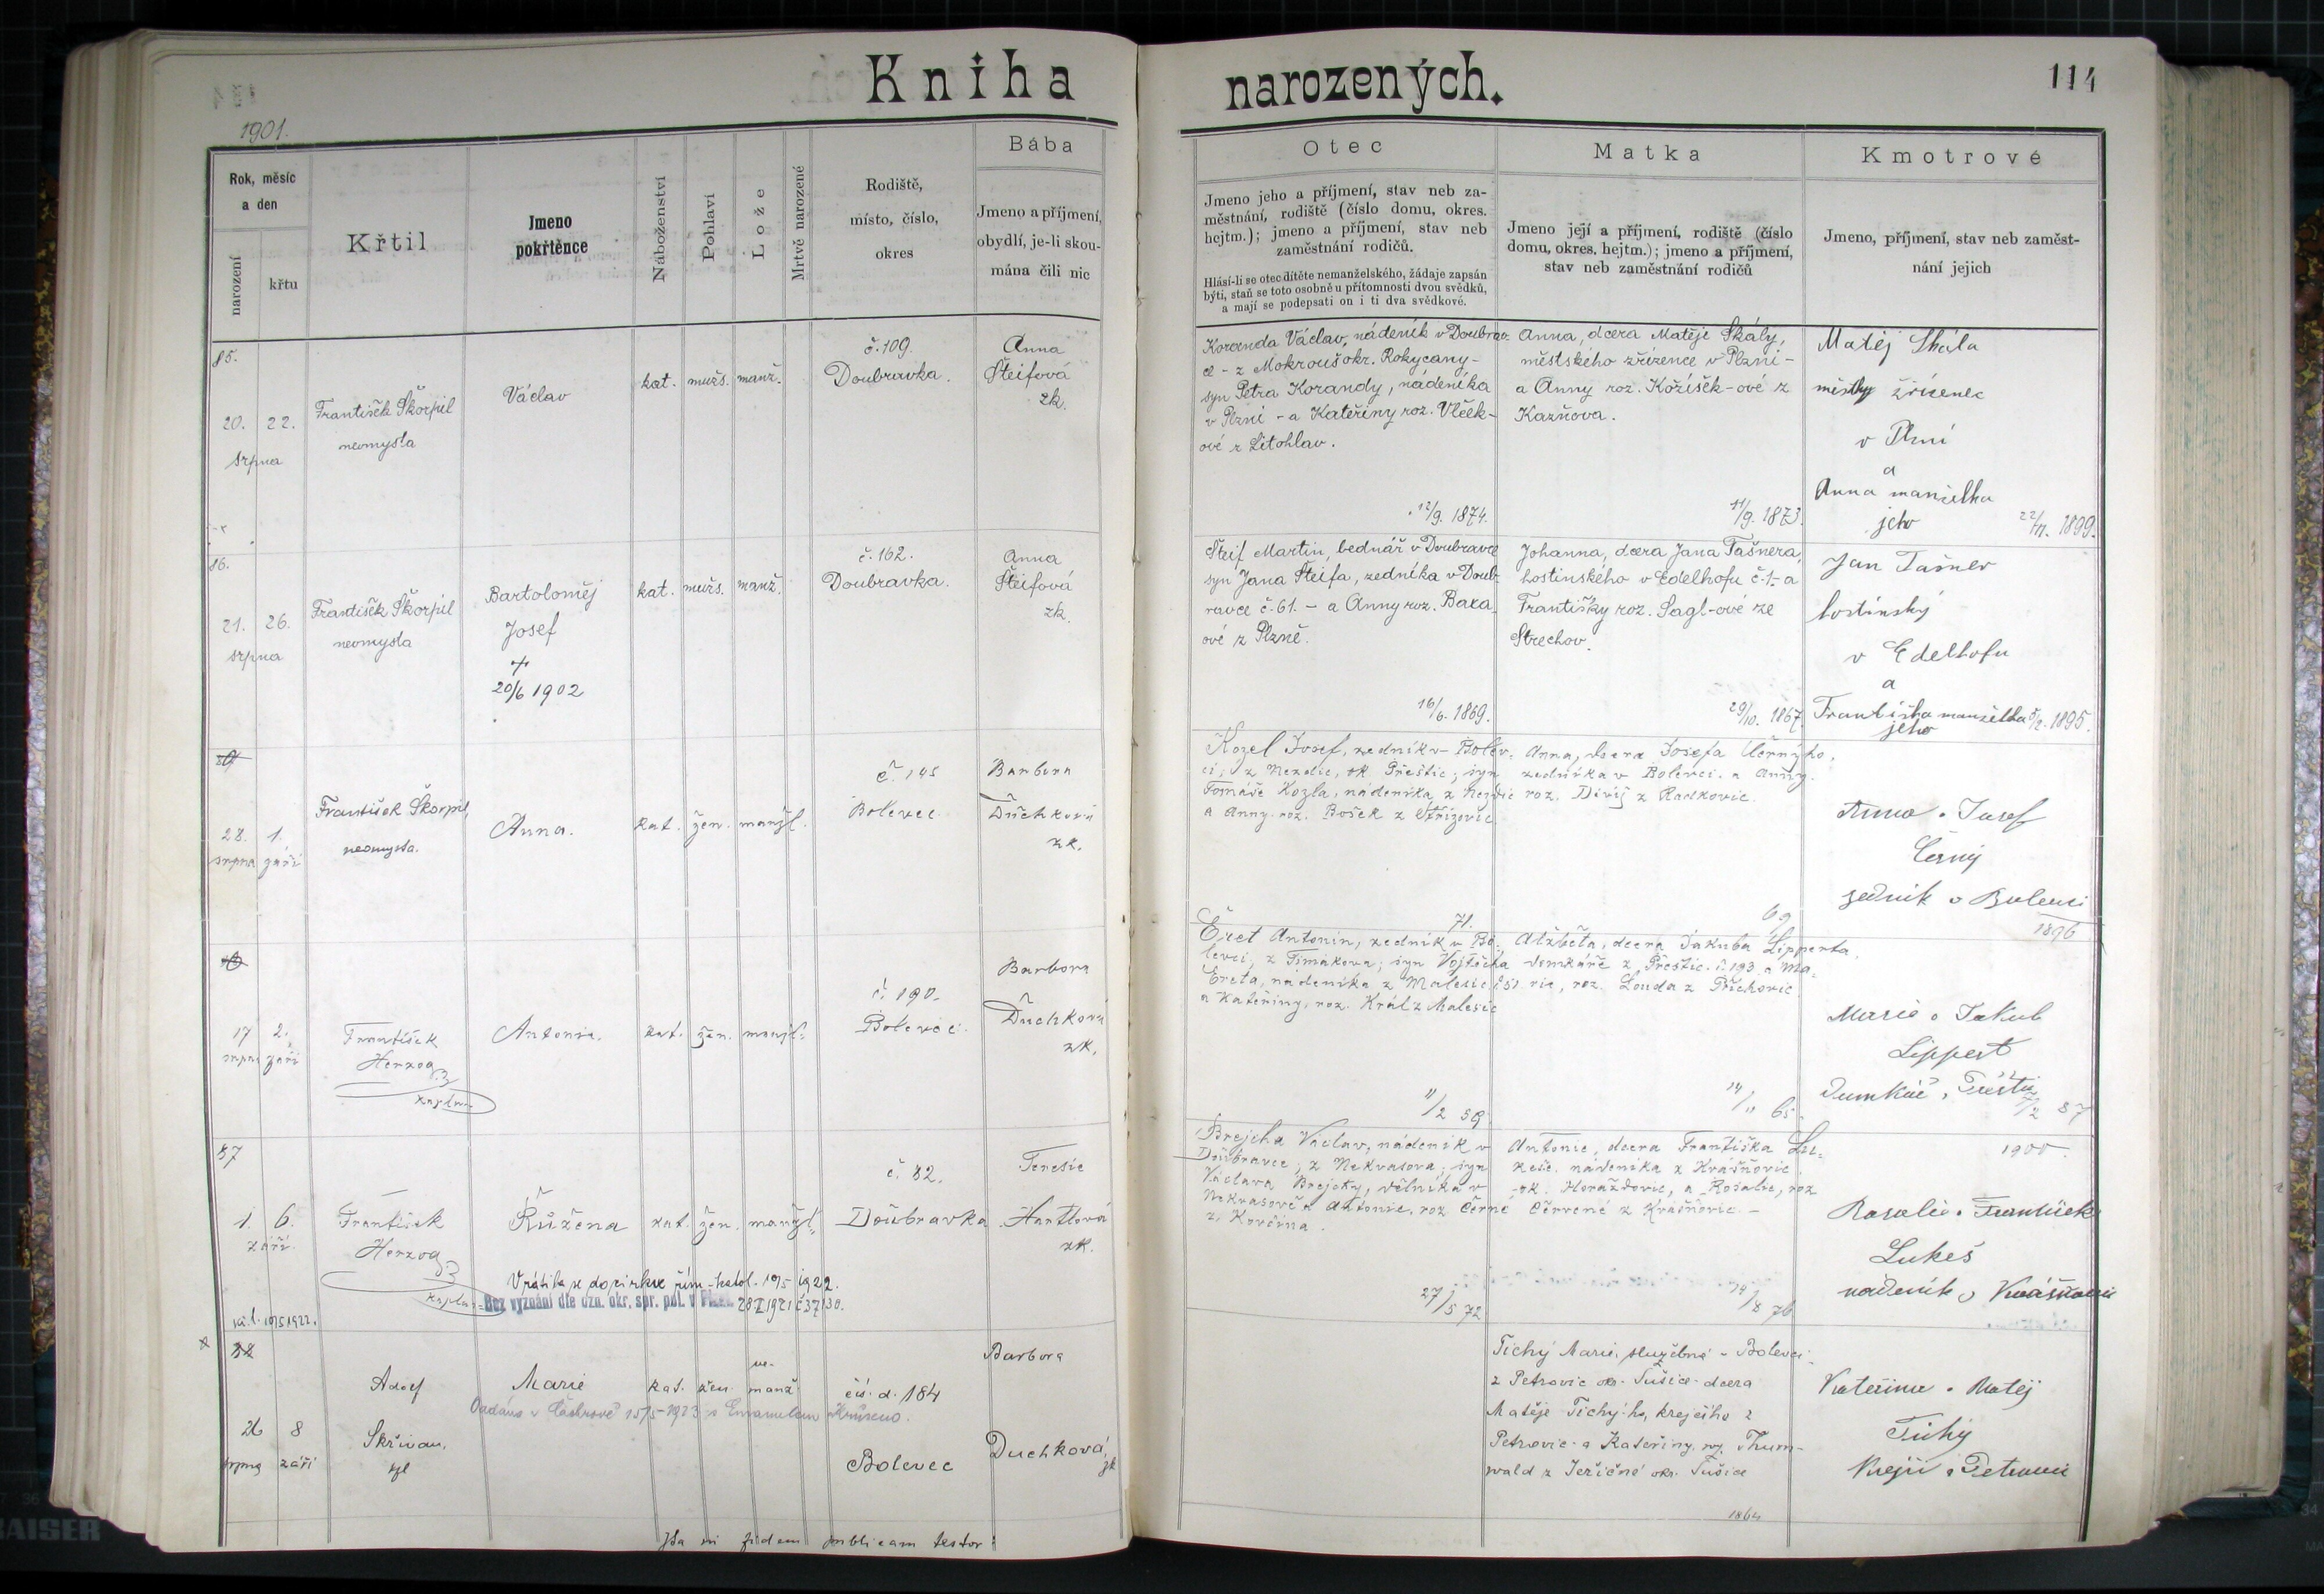 Kniha narozených.
114
1901.
Rok, měsíc
a den
narození
křtu
Křtil
Jmeno
pokřtěnce
Náboženství
Pohlaví
Lože
Mrtvě narozené
Rodiště,
místo, číslo,
okres
Bába
Jmeno a příjmení,
obydlí, je-li skou-
mána čili nic
Otec
Jmeno jeho a příjmení, stav neb za-
městnání, rodiště (číslo domu, okres.
hejtm.); jmeno a příjmení, stav neb
zaměstnání rodičů.
Hlásí-li se otec dítěte nemanželského, žádaje zapsán
býti, staň se toto osobně u přítomnosti dvou svědků,
a mají se podepsati on i ti dva svědkové.
Matka
Jmeno její a příjmení, rodiště (číslo
domu, okres. hejtm.); jmeno a příjmení,
stav neb zaměstnání rodičů
Kmotrové
Jmeno, příjmení, stav neb zaměst-
nání jejich
85.
20. 22.
srpna
František Škorpil
neomysta
Václav
kat. mužs. manž.
č. 109.
Doubravka.
Anna
Šteifová
zk.
Koranda Václav, nádeník v Doubrav-
ce - z Mokrouš okr. Rokycany -
syn Petra Korandy, nádeníka
v Plzni - a Kateřiny roz. Vlček-
ové z Litohlav.
12/9. 1874.
Anna, dcera Matěje Skály,
městského zřízence v Plzni -
a Anny roz. Kožíšek-ové z
Kazňova.
11/9. 1873.
Matěj Skála
městský zřízenec
v Plzni
a
Anna manželka
jeho
22/11. 1899.
86.
21. 26.
srpna
František Škorpil
neomysta
Bartoloměj
Josef
+
20/6 1902
kat. mužs. manž.
č. 162.
Doubravka.
Anna
Šteifová
zk.
Šteif Martin, bednář v Doubravce
syn Jana Šteifa, zedníka v Doub-
ravce č. 61. - a Anny roz. Baxa-
ové z Plzně.
16/6. 1869.
Johanna, dcera Jana Tašnera,
hostinského v Edelhofu č. 1. - a
Františky roz. Sagl-ové ze
Strechov.
29/10. 1867.
Jan Tašner
hostinský
v Edelhofu
a
Františka manželka
jeho
1895.
28. 1.
srpna září
František Škorpil,
neomysta.
Anna.
kat. žen. manžl.
č. 145
Bolevec.
Barbora
Duchková
zk.
Kozel Josef, zedník v Bolev-
ci, z Nezdic, ok. Přeštic; syn
Tomáše Kozla, nádeníka z Nezdic
a Anny roz. Bošek z Střížovic
71.
Anna, dcera Josefa Černýho,
zedníka v Bolevci a Anny
roz. Diviš z Radkovic.
69
Anna a Josef
Černý
zedník v Bolevci
1896
17 2.
srpna září
František
Herzog
kaplan
Antonie.
kat. žen. manžl.
č. 190.
Bolevec.
Barbora
Duchková
zk.
Eret Antonín, zedník v Bo-
levci, z Timakova; syn Vojtěcha
Ereta, nádeníka z Malesic č. 51
a Kateřiny, roz. Král z Malesic
11/2 59
Alžběta, dcera Jakuba Lipperta,
domkáře z Přeštic č. 193 a Ma-
rie, roz. Louda z Příchovic
14/11 65.
Marie a Jakub
Lippert
domkář, Přeštic
87
87
1. 6.
září.
František
Herzog
kaplan
Růžena
kat. žen. manžl.
č. 82.
Doubravka
Teresie
Hartlová
zk.
Vrátila se do církve řím.-katol. 10/5 1922.
Bez vyznání dle ozn. okr. spr. pol. v Plzni 28 I 1921 č 37130.
Brejcha Václav, nádeník v
Doubravce; z Nekvasova; syn
Václava Brejchy, dělníka v
Nekvasově a Antonie, roz. Černé
z Kovčína.
27/5 72
Antonie, dcera Františka Lu-
keše, nádeníka z Kvášňovic
ok. Horažďovic, a Rosalie, roz
Červené z Kvášňovic -
14/8 76
1900.
Rosalie a František
Lukeš
nádeník v Kvášňovic
26 8
srpna září
Adolf
Skřivan,
kpl
Marie
kat. žen. ne-
manž
čís. d. 184
Bolevec
Barbora
Duchková,
zk
Oddána v Čachrově 15/5 1923 s Emanuelem
Tichý Marie, služebná v Bolevci
z Petrovic okr. Sušice - dcera
Matěje Tichý-ho, krejčího z
Petrovic a Kateřiny, roz. Thum-
wald z Jeřičné okr. Sušice
1864
Kateřina a Matěj
Tichý
Krejčí z Petrovic
Ita in fidem publicam testor: